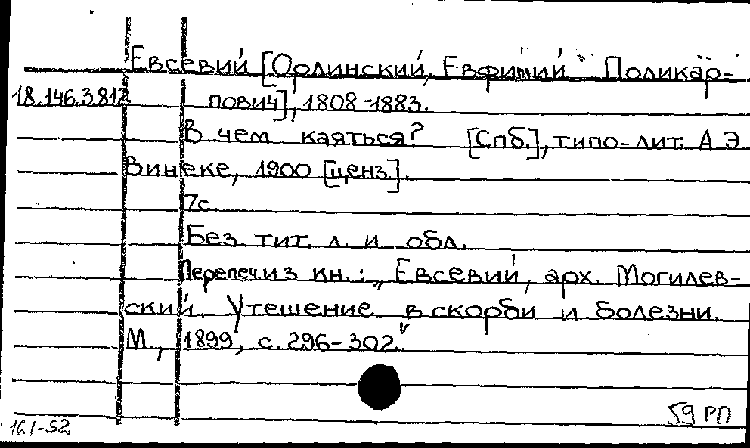 Евсевий [Орлинский, Евфимий Поликар-
18.146.3.812 пович], 1808-1883.
В чем каяться? [Спб.], типо-лит. А.Э.
Винеке, 1900 [ценз.].
7с.
Без тит. л. и обл.
Перепеч. из кн.: „Евсевий, арх. Могилев-
ский. Утешение в скорби и болезни.
М., 1899, с. 296-302."
59 РП
16.1-52